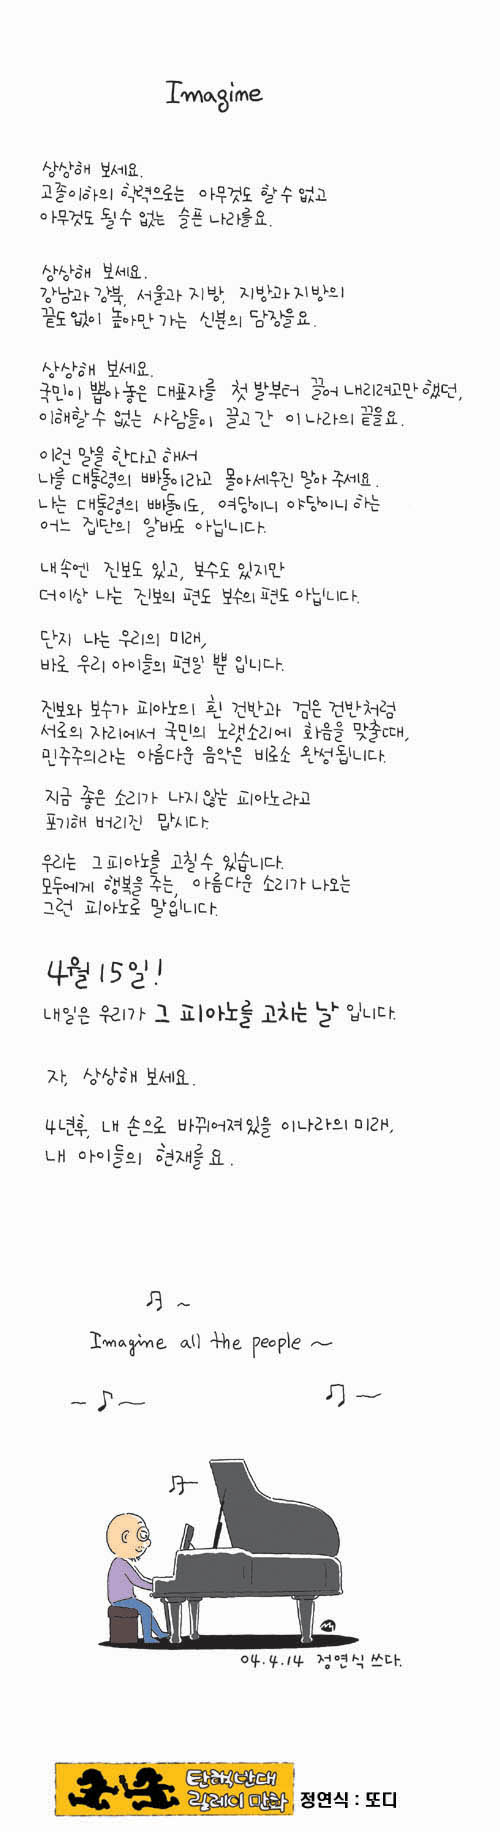 Imagine
상상해 보세요.
고졸이하의 학력으로는 아무것도 할 수 없고
아무것도 될 수 없는 슬픈 나라를요.
상상해 보세요.
강남과 강북, 서울과 지방, 지방과 지방의
끝도 없이 높아만 가는 신분의 담장을요.
상상해 보세요.
국민이 뽑아 놓은 대표자를 첫 발부터 끌어 내리려고만 했던,
이해할 수 없는 사람들이 끌고 간 이 나라의 끝을요.
이런 말을 한다고 해서
나를 대통령의 빠돌이라고 몰아세우진 말아 주세요.
나는 대통령의 빠돌이도, 여당이니 야당이니 하는
어느 집단의 알바도 아닙니다.
내 속엔 진보도 있고, 보수도 있지만
더이상 나는 진보의 편도 보수의 편도 아닙니다.
단지 나는 우리의 미래,
바로 우리 아이들의 편일 뿐 입니다.
진보와 보수가 피아노의 흰 건반과 검은 건반처럼
서로의 자리에서 국민의 노랫소리에 화음을 맞출때,
민주주의라는 아름다운 음악은 비로소 완성됩니다.
지금 좋은 소리가 나지 않는 피아노라고
포기해 버리진 맙시다.
우리는 그 피아노를 고칠 수 있습니다.
모두에게 행복을 주는, 아름다운 소리가 나오는
그런 피아노로 말입니다.
4월 15일!
내일은 우리가 그 피아노를 고치는 날 입니다.
자, 상상해 보세요.
4년후, 내 손으로 바뀌어져 있을 이 나라의 미래,
내 아이들의 현재를요.
Imagine all the people ~
04.4.14 정연식 쓰다.
탄핵반대
릴레이 만화
정연식 : 또디